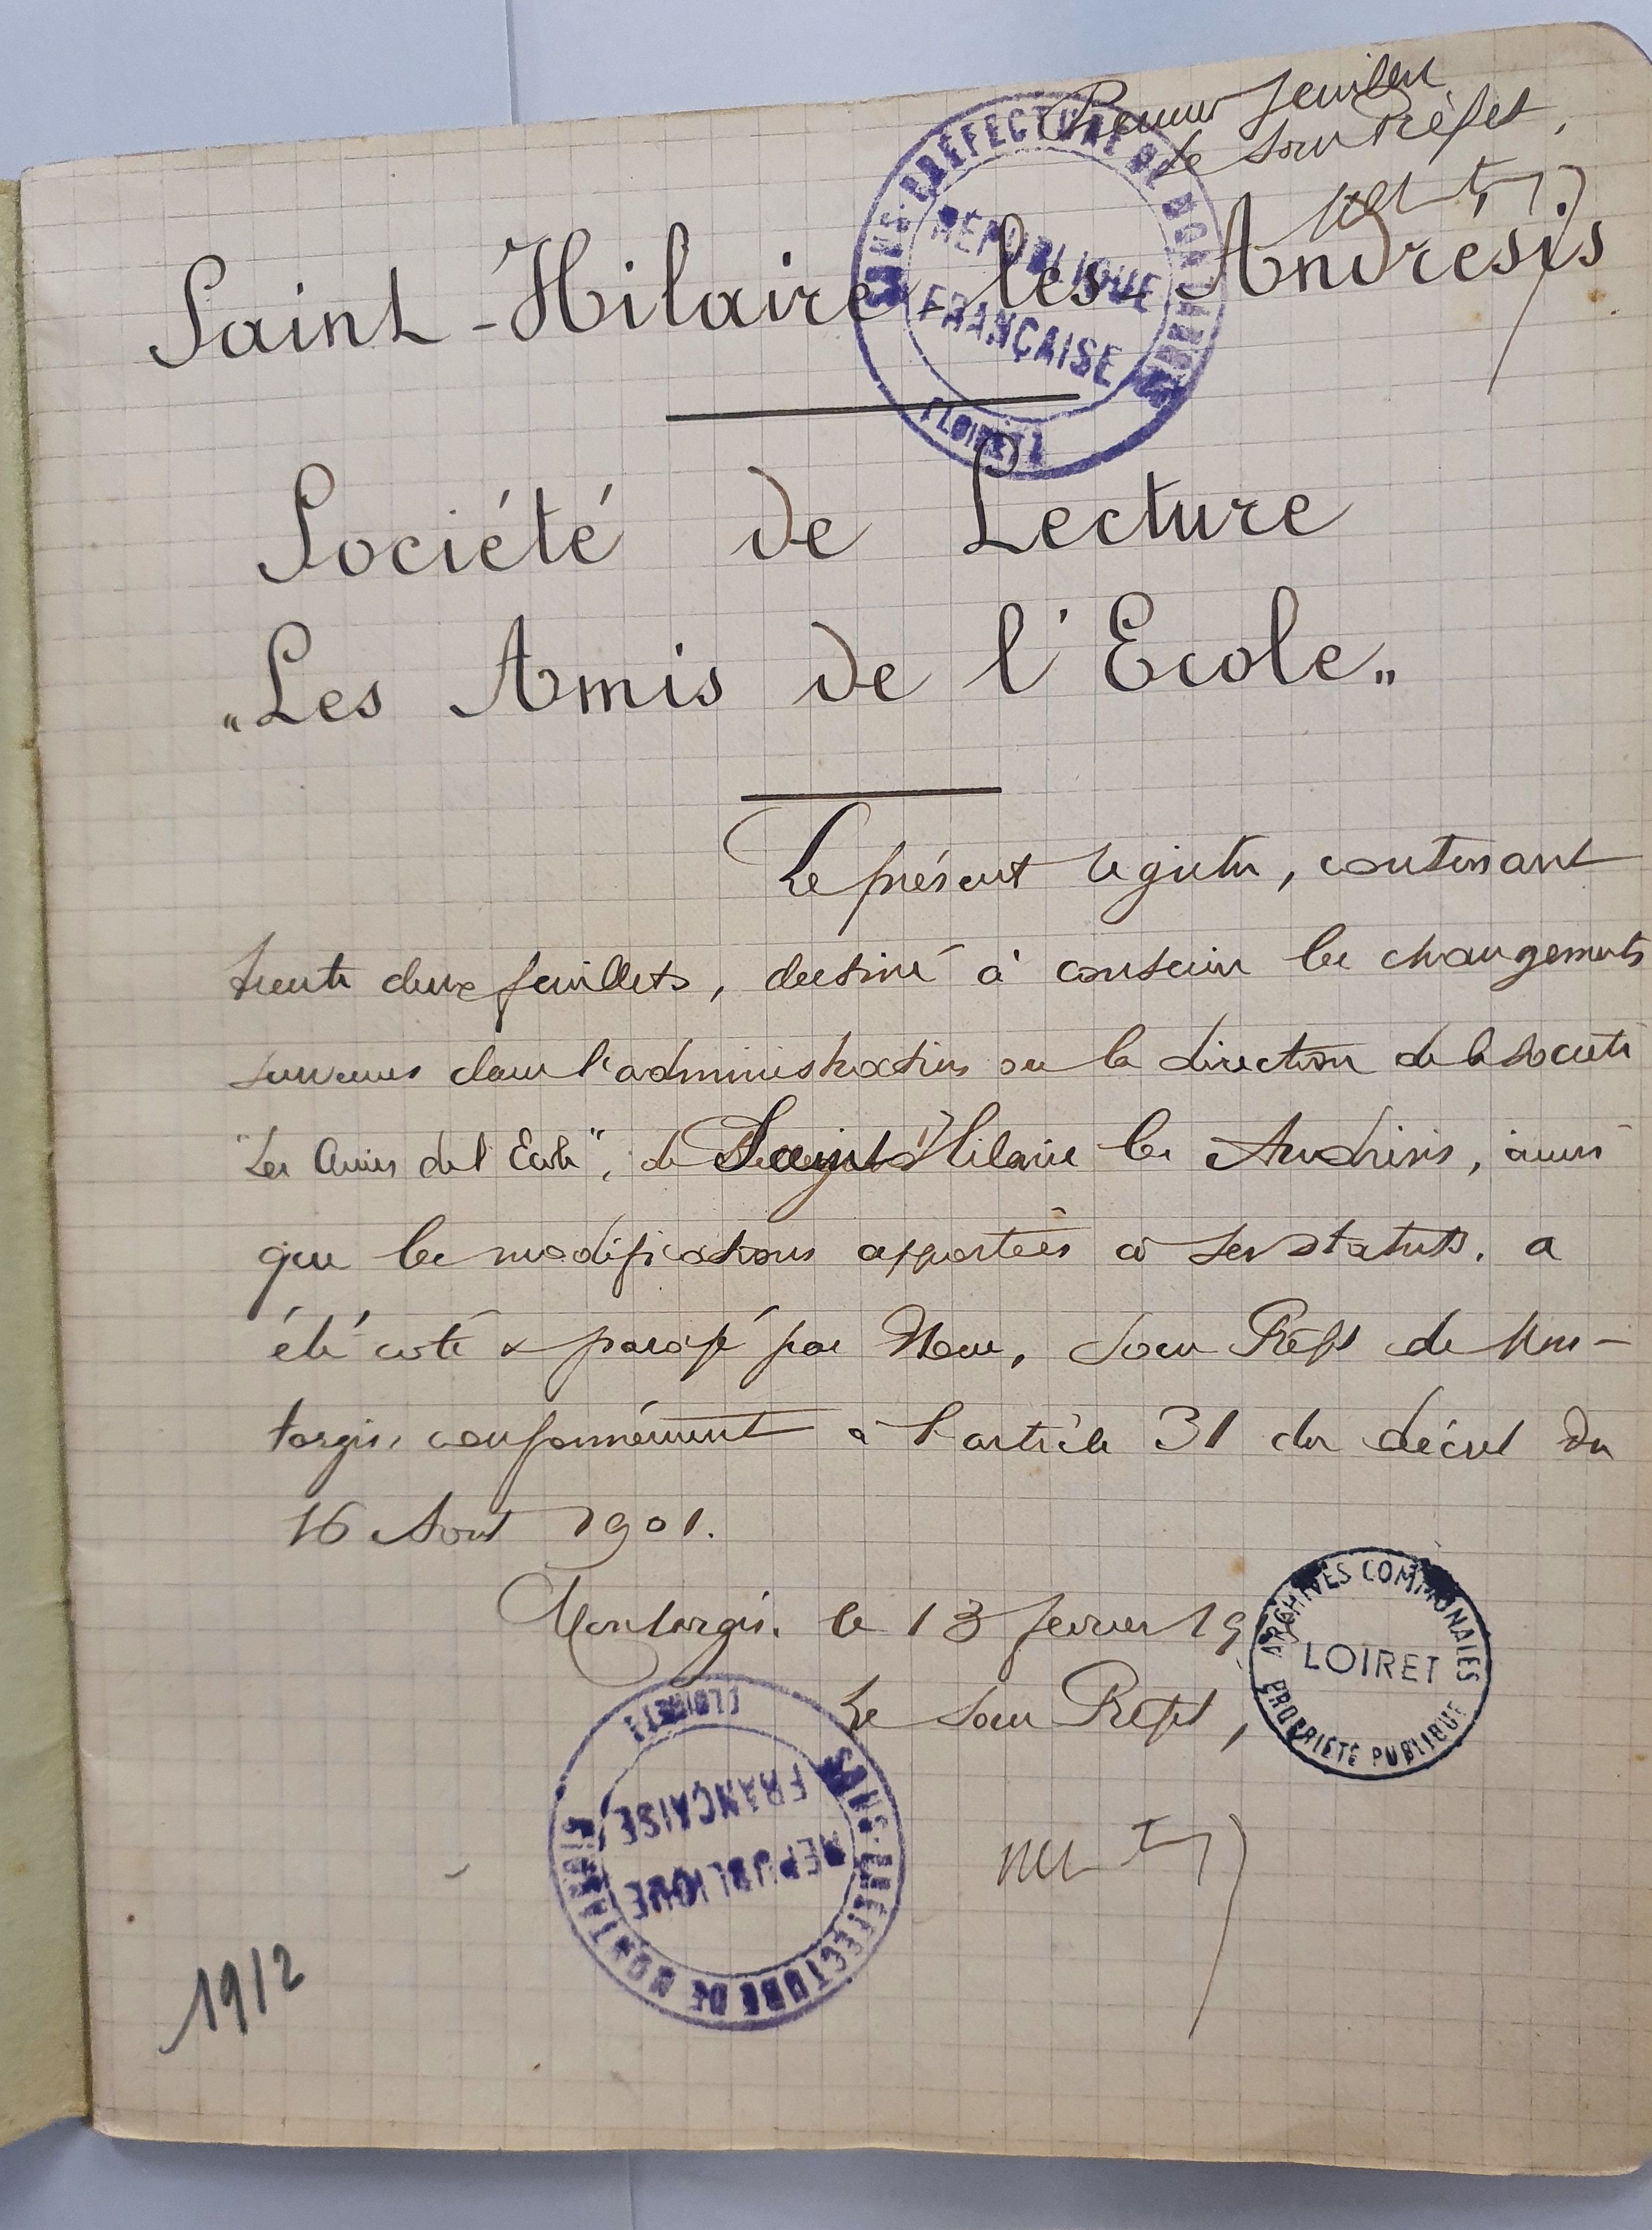 Premier feuillet
le Sous Préfet,
Saint-Hilaire les Andrésis
SOUS-PRÉFECTURE DE MONTARGIS
RÉPUBLIQUE
FRANÇAISE
(LOIRET)
Société de Lecture
"Les Amis de l'Ecole"
Le présent registre, contenant
trente deux feuillets, destiné à contenir les changements
survenus dans l'administration ou la direction de la société
"Les Amis de l'Ecole", de Saint Hilaire les Andrésis, ainsi
que les modifications apportées à ses statuts, a
été coté & parafé par Nous, Sous Préfet de Mon-
targis, conformément à l'article 31 du décret du
16 Août 1901.
Montargis, le 13 février 19
Le Sous Préfet,
ARCHIVES COMMUNALES
LOIRET
PROPRIÉTÉ PUBLIQUE
SOUS-PRÉFECTURE DE MONTARGIS
RÉPUBLIQUE
FRANÇAISE
(LOIRET)
1912